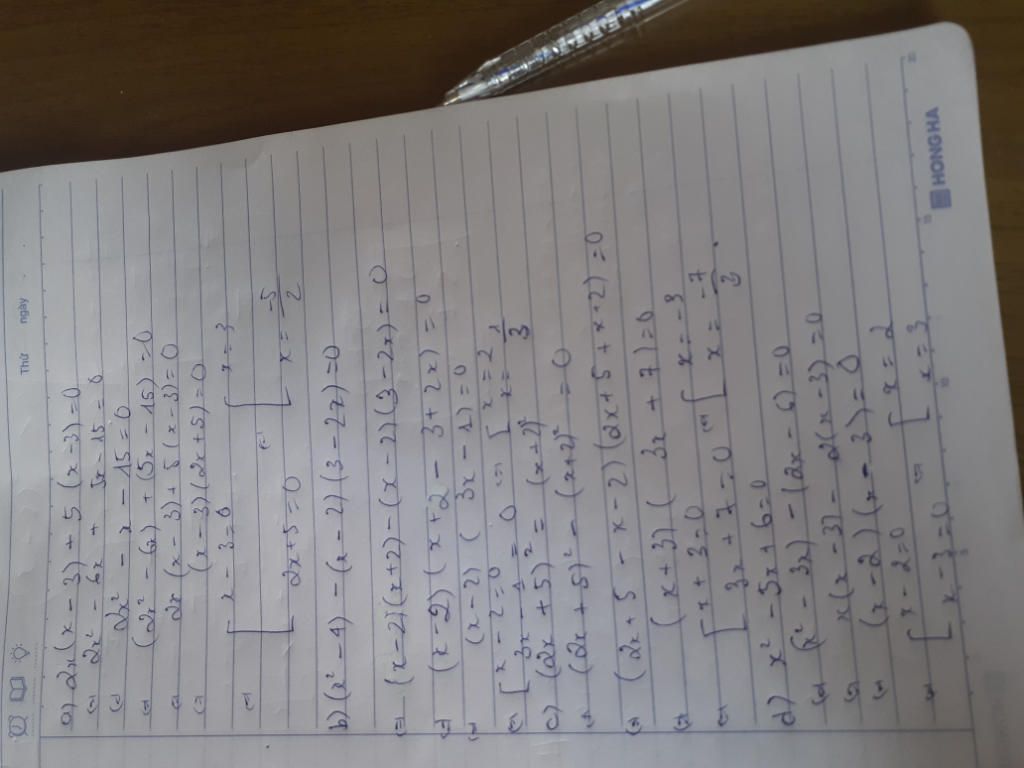 Thứ ngày
a) 2x(x-3)+5(x-3)=0
⇔ 2x² - 6x + 5x - 15 = 0
⇔ 2x² - x - 15 = 0
⇔ (2x² - 6x) + (5x - 15) = 0
⇔ 2x(x-3) + 5(x-3)=0
⇔ (x-3)(2x+5)=0
⇔ [ x-3=0 ⇔ [ x=3
2x+5=0 x = -5/2
b) (x²-4) - (x-2)(3-2x)=0
⇔ (x-2)(x+2) - (x-2)(3-2x) = 0
⇔ (x-2)(x+2-3+2x)=0
⇔ (x-2)(3x-1)=0
⇔ [ x-2=0 ⇔ [ x=2
3x-1=0 x=1/3
c) (2x+5)² = (x+2)²
⇔ (2x+5)² - (x+2)² = 0
⇔ (2x+5-x-2)(2x+5+x+2)=0
⇔ (x+3)(3x+7)=0
⇔ [ x+3=0 ⇔ [ x=-3
3x+7=0 x=-7/3
d) x² - 5x + 6 = 0
⇔ (x² - 3x) - (2x-6)=0
⇔ x(x-3) - 2(x-3)=0
⇔ (x-2)(x-3)=0
⇔ [ x-2=0 ⇔ [ x=2
x-3=0 x=3
HONG HA